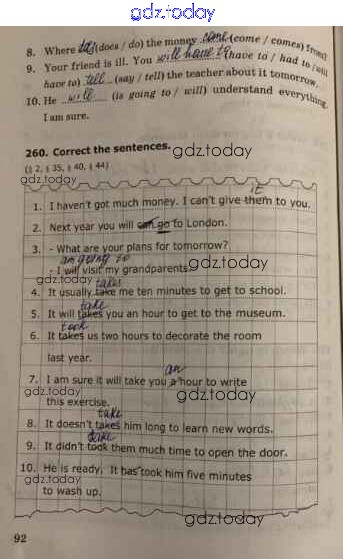 gdz.today
8. Where does (does / do) the money come (come / comes) from?
9. Your friend is ill. You will have to (have to / had to / will
have to) tell (say / tell) the teacher about it tomorrow.
10. He will (is going to / will) understand everything,
I am sure.
260. Correct the sentences.
gdz.today
(§ 2, § 35, § 40, § 44)
it
1. I haven't got much money. I can't give them to you.
2. Next year you will can go to London.
gdz.today
3. - What are your plans for tomorrow?
am going to
- I will visit my grandparents.
gdz.today
takes
4. It usually take me ten minutes to get to school.
take
5. It will takes you an hour to get to the museum.
took
6. It takes us two hours to decorate the room
gdz.today
last year.
an
7. I am sure it will take you a hour to write
gdz.today
this exercise.
take
8. It doesn't takes him long to learn new words.
take
9. It didn't took them much time to open the door.
gdz.today
10. He is ready. It has took him five minutes
to wash up.
gdz.today
92
gdz.today